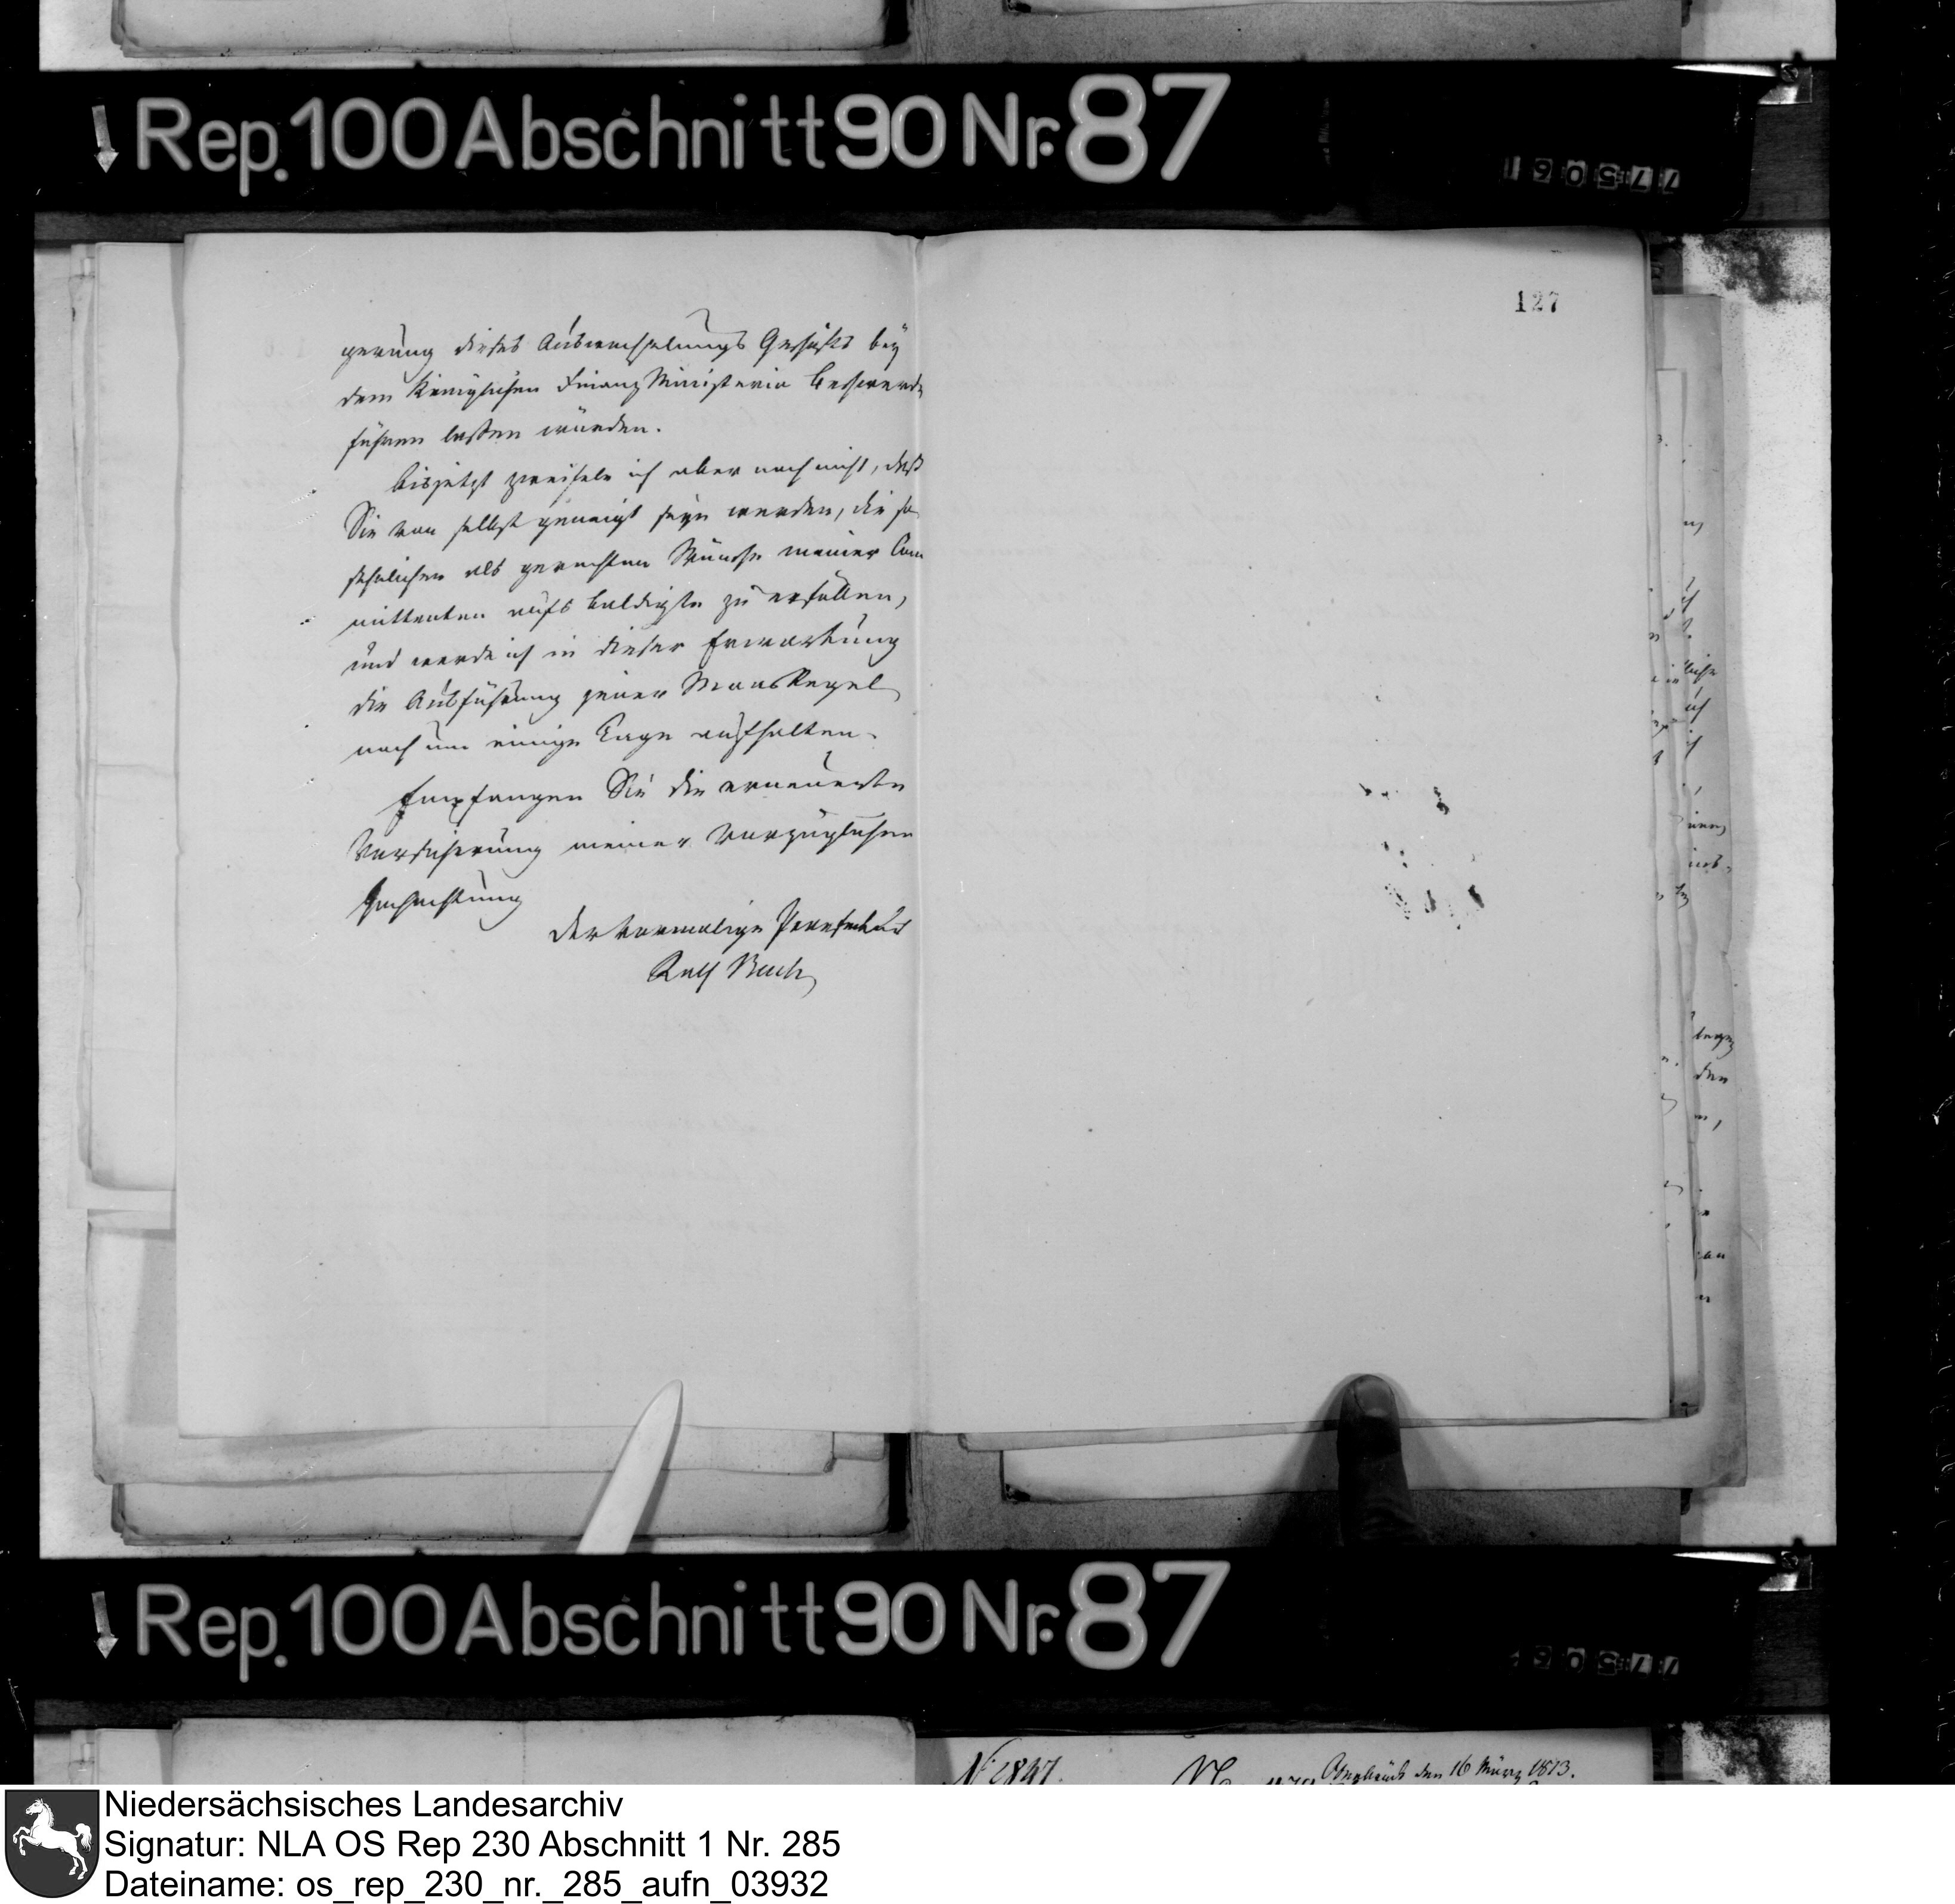 Rep. 100 Abschnitt 90 Nr. 87
127
gerung dieses Auswechselungs Geschäfts bey
dem Königlichen Finanz Ministerio Beschwerde
führen laßen würden.
Bisjetzt zweifele ich aber noch nicht, daß
Sie von selbst geneigt seyn werden, die so
als gerechten Wünsche meiner Com
mittenten aufs baldigste zu erfüllen,
und werde ich in dieser Erwartung
die Ausführung jener Maasregel
noch um einige Tage aufhalten.
Empfangen Sie die erneuerte
Versicherung meiner vorzüglichen
Hochachtung
Der vormalige
Rep. 100 Abschnitt 90 Nr. 87
Osnabrück den 16 März 1813.
Niedersächsisches Landesarchiv
Signatur: NLA OS Rep 230 Abschnitt 1 Nr. 285
Dateiname: os_rep_230_nr._285_aufn_03932